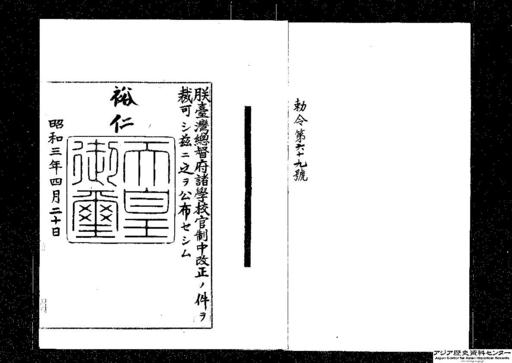 勅令第六十九號
朕臺灣總督府諸學校官制中改正ノ件ヲ
裁可シ茲ニ之ヲ公布セシム
裕仁
天皇
御璽
昭和三年四月二十日
アジア歴史資料センター
Japan Center for Asian Historical Records